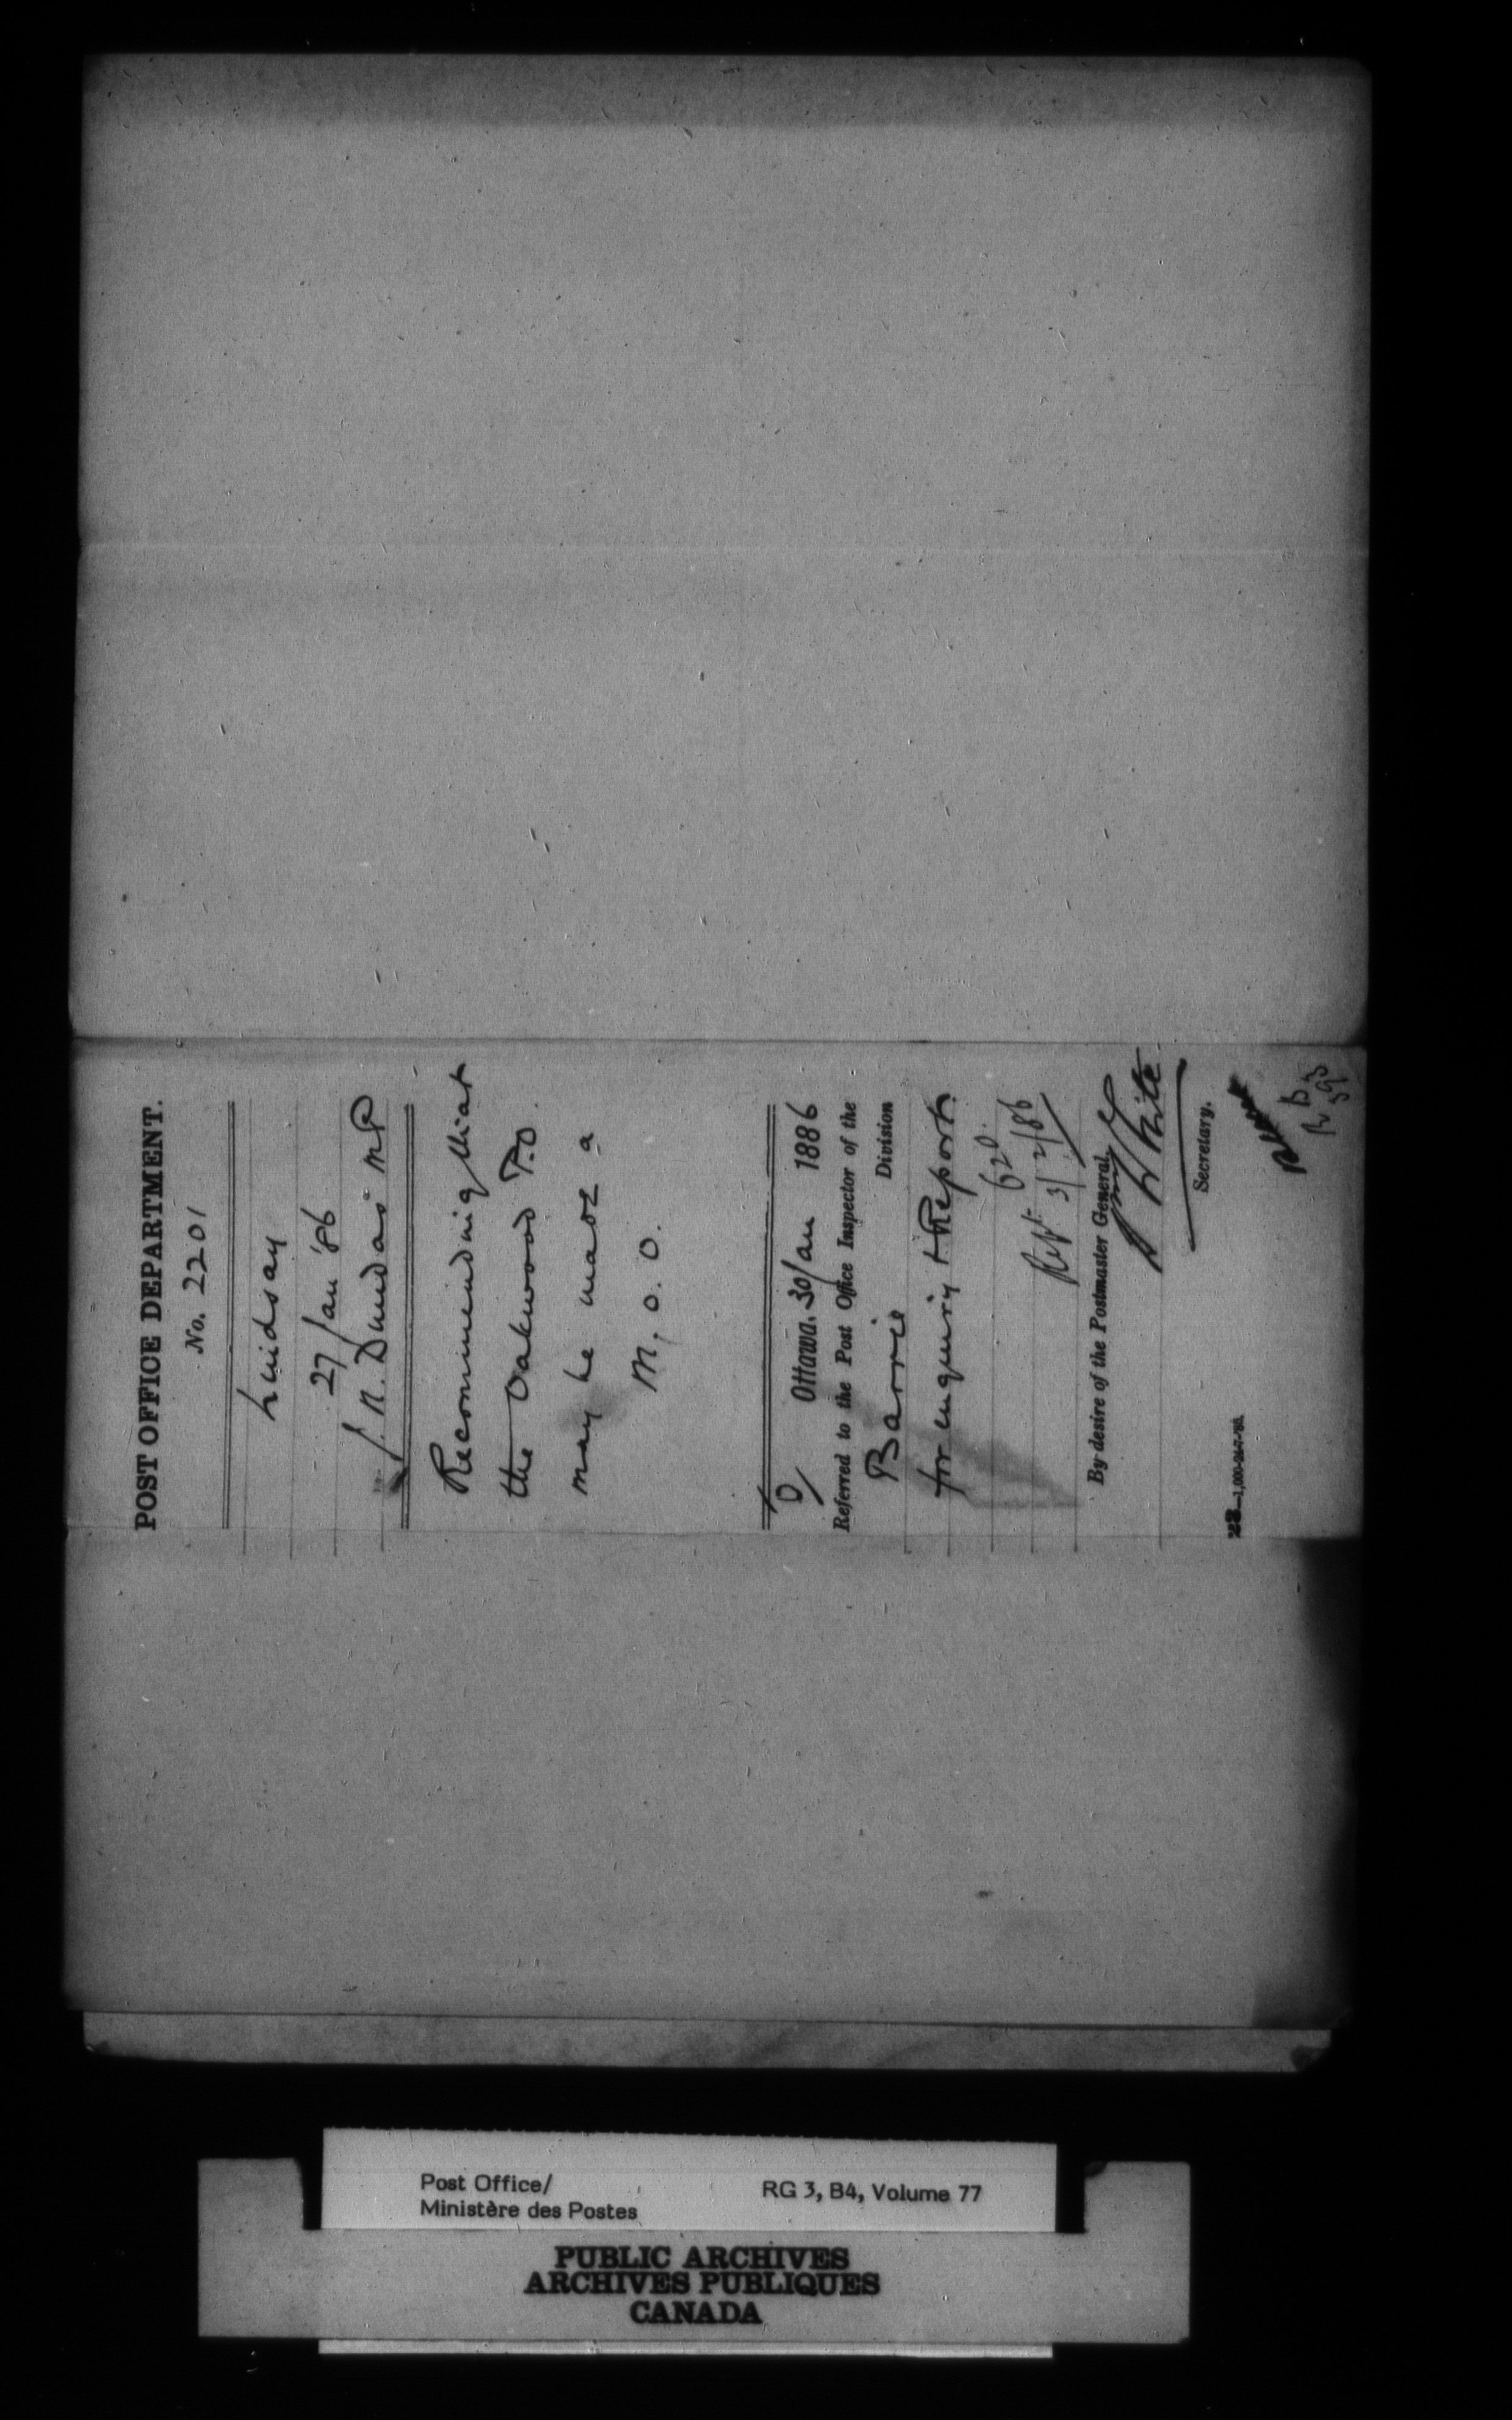 POST OFFICE DEPARTMENT.
No. 2201
Lindsay
27 Jan '86
J. R. Dundas MP
Recommending that
the Oakwood P.O.
may be made a
M. O. O.
Ottawa, 30 Jan 1886
Referred to the Post Office Inspector of the
Barrie Division
for enquiry & Report
620.
Rept 3/2/86
By desire of the Postmaster General,
White
Secretary.
23—1,000-24-7-'85.
Post Office/
Ministère des Postes
RG 3, B4, Volume 77
PUBLIC ARCHIVES
ARCHIVES PUBLIQUES
CANADA